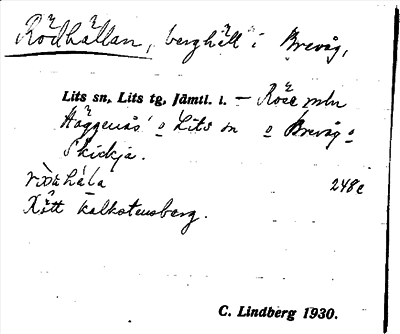 Rödhällan, berghäll i Brevåg,
Lits sn, Lits tg, Jämtl. l. —
Häggenås o Lits sn o Brevåg o
Skickja.
248c
Rött kalkstensberg.
C. Lindberg 1930.